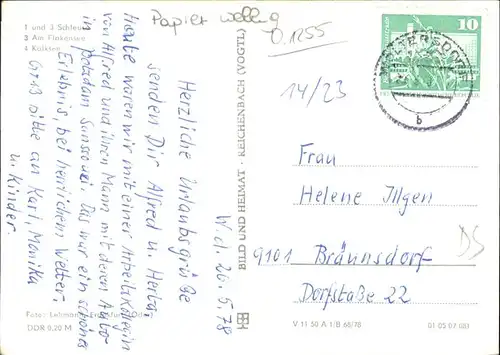 1 und 3 Schleuse
2 Am Flakensee
4 Kalksee
Papier wellig
0.1255
10
WOLTERSDORF
b
14/23
W. d. 26.5.78
Herzliche Urlaubsgrüße
senden Dir Alfred u. Herta
Heute waren wir mit einer Arbeitskollegin
von Alfred und ihren Mann mit deren Auto
in Potsdam Sanssouci. Das war ein schönes
Erlebnis bei herrlichem Wetter.
Grüß bitte an Karl, Monika
u. Kinder.
BILD UND HEIMAT · REICHENBACH (VOGTL)
Frau
Helene Illgen
9101 Bräunsdorf
Dorfstraße 22
DS
Foto: Lehmann, Frankfurt (Oder)
DDR 0,20 M
V 11 50 A 1/B 68/78
01 05 07 081